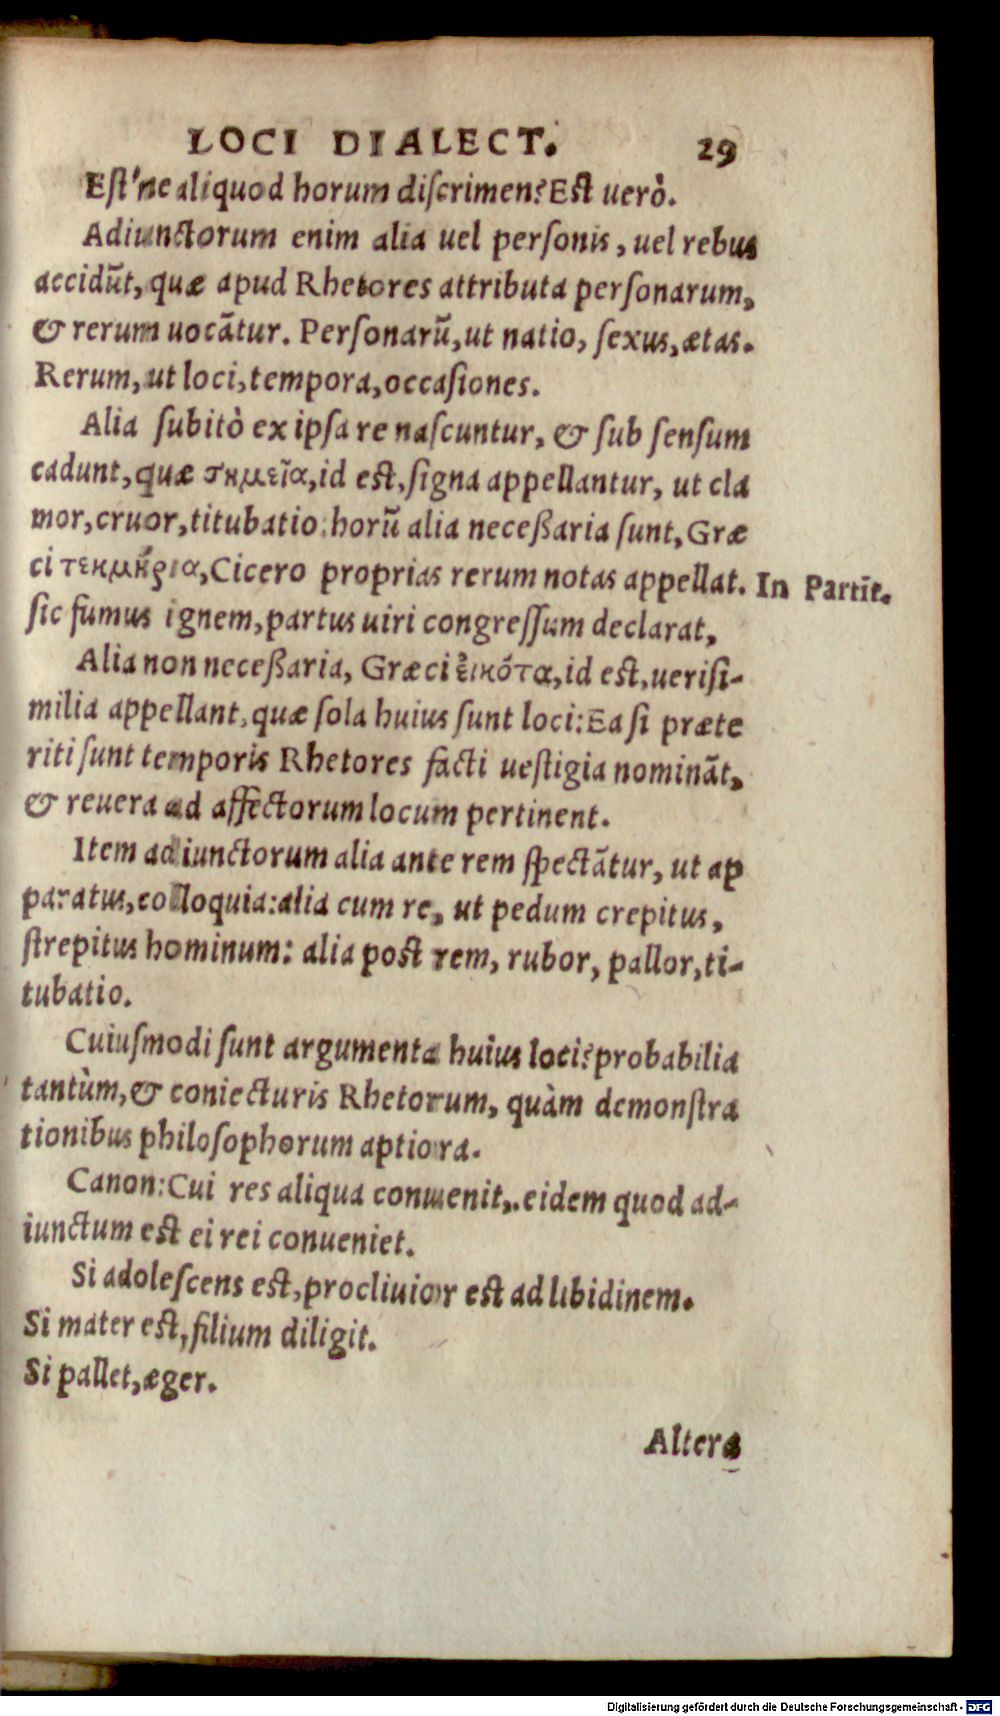 LOCI DIALECT. 29
Est'ne aliquod horum discrimen? Est uerò.
Adiunctorum enim alia uel personis, uel rebus
accidūt, quæ apud Rhetores attributa personarum,
& rerum uocātur. Personarū, ut natio, sexus, ætas.
Rerum, ut loci, tempora, occasiones.
Alia subitò ex ipsa re nascuntur, & sub sensum
cadunt, quæ σημεῖα, id est, signa appellantur, ut cla
mor, cruor, titubatio: horū alia necessaria sunt, Græ
ci τεκμήρια, Cicero proprias rerum notas appellat. In Partit.
sic fumus ignem, partus uiri congressum declarat,
Alia non necessaria, Græci εἰκότα, id est, uerisi-
milia appellant, quæ sola huius sunt loci: Ea si præte
riti sunt temporis Rhetores facti uestigia nomināt,
& reuera ad affectorum locum pertinent.
Item adiunctorum alia ante rem spectātur, ut ap
paratus, colloquia: alia cum re, ut pedum crepitus,
strepitus hominum: alia post rem, rubor, pallor, ti-
tubatio.
Cuiusmodi sunt argumenta huius loci? probabilia
tantùm, & coniecturis Rhetorum, quàm demonstra
tionibus philosophorum aptiora.
Canon: Cui res aliqua conuenit, eidem quod ad-
iunctum est ei rei conueniet.
Si adolescens est, procliuior est ad libidinem.
Si mater est, filium diligit.
Si pallet, æger.
Altera
Digitalisierung gefördert durch die Deutsche Forschungsgemeinschaft - DFG